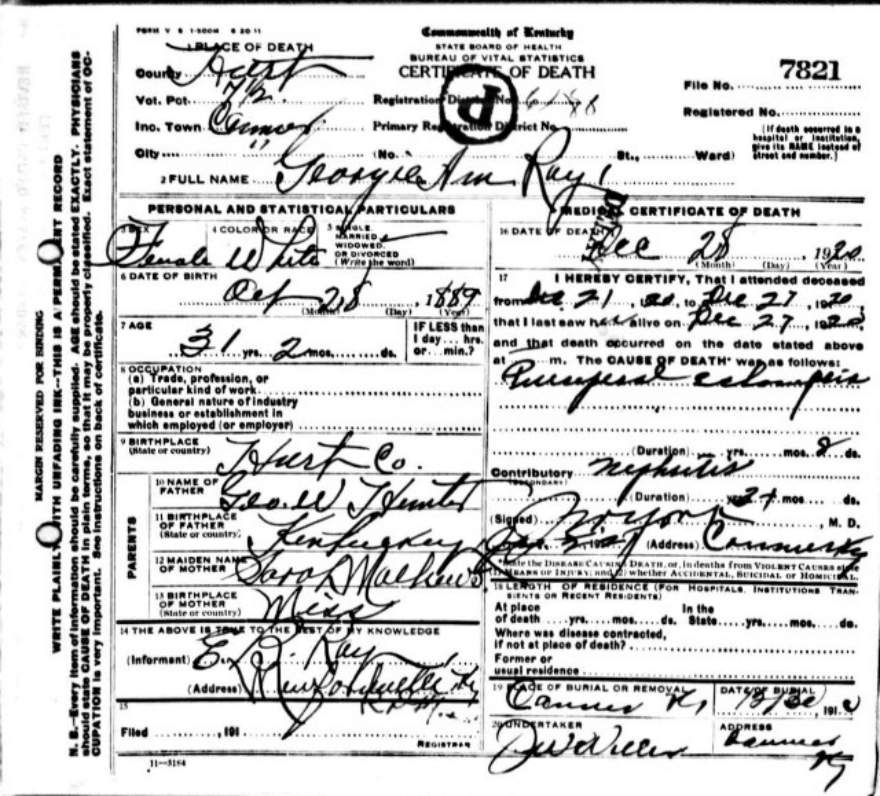 FORM V S 1-500M 6 20 11
Commonwealth of Kentucky
STATE BOARD OF HEALTH
BUREAU OF VITAL STATISTICS
CERTIFICATE OF DEATH
1 PLACE OF DEATH
County Hart
Vot. Pct.
Inc. Town Canmer
City
Registration District No.
Primary Registration District No.
(No. St., Ward)
File No. 7821
Registered No.
(If death occurred in a
hospital or institution,
give its NAME instead of
street and number.)
P
2 FULL NAME Georgie Ann Ray
PERSONAL AND STATISTICAL PARTICULARS
3 SEX
Female
4 COLOR OR RACE
White
5 SINGLE,
MARRIED,
WIDOWED,
OR DIVORCED
(Write the word)
6 DATE OF BIRTH
Oct 28, 1889
(Month) (Day) (Year)
7 AGE
31 yrs. 2 mos. ds.
IF LESS than
1 day... hrs.
or... min.?
8 OCCUPATION
(a) Trade, profession, or
particular kind of work
(b) General nature of industry
business or establishment in
which employed (or employer)
9 BIRTHPLACE
(State or country)
Hart Co.
PARENTS
10 NAME OF
FATHER
Geo. W Hunter
11 BIRTHPLACE
OF FATHER
(State or country)
Kentuckey
12 MAIDEN NAME
OF MOTHER
Sarah Mathews
13 BIRTHPLACE
OF MOTHER
(State or country)
Miss
14 THE ABOVE IS TRUE TO THE BEST OF MY KNOWLEDGE
(Informant) E. Ray
(Address)
15
Filed , 191
REGISTRAR
11-3184
MEDICAL CERTIFICATE OF DEATH
16 DATE OF DEATH
Dec 28, 1920
(Month) (Day) (Year)
17 I HEREBY CERTIFY, That I attended deceased
from Dec 21, to Dec 27, 1920
that I last saw her alive on Dec 27, 1920
and that death occurred on the date stated above
at m. The CAUSE OF DEATH* was as follows:
Puerperal eclampsia
(Duration) yrs. mos. 2 ds.
Contributory nephritis
(SECONDARY)
(Duration) yrs. 2+ mos. ds.
(Signed) , M. D.
(Address) Canmer Ky
*State the DISEASE CAUSING DEATH, or, in deaths from VIOLENT CAUSES state
MEANS OF INJURY; and (2) whether ACCIDENTAL, SUICIDAL or HOMICIDAL.
18 LENGTH OF RESIDENCE (FOR HOSPITALS, INSTITUTIONS, TRAN-
SIENTS OR RECENT RESIDENTS)
At place
of death yrs. mos. ds.
In the
State yrs. mos. ds.
Where was disease contracted,
if not at place of death?
Former or
usual residence
19 PLACE OF BURIAL OR REMOVAL
Canmer Ky
DATE OF BURIAL
, 191
20 UNDERTAKER
ADDRESS
Canmer
Ky
MARGIN RESERVED FOR BINDING
WRITE PLAINLY WITH UNFADING INK--THIS IS A PERMANENT RECORD
N. B.--Every item of information should be carefully supplied. AGE should be stated EXACTLY. PHYSICIANS
should state CAUSE OF DEATH in plain terms, so that it may be properly classified. Exact statement of OC-
CUPATION is very important. See instructions on back of certificate.